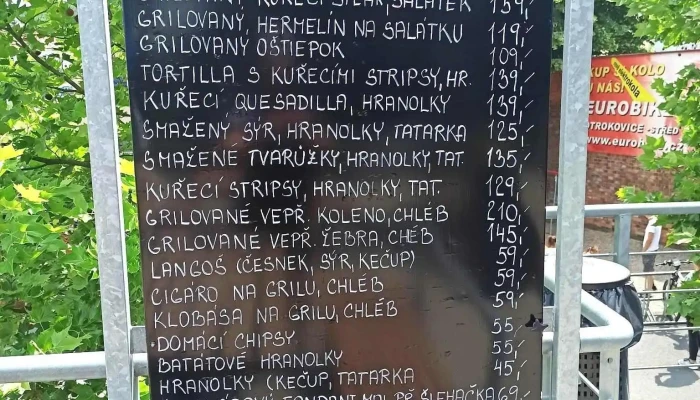 KUŘECÍ STEAK, SALÁTEK 159,-
GRILOVANÝ HERMELÍN NA SALÁTKU 119,-
GRILOVANÝ OŠTIEPOK 109,-
TORTILLA S KUŘECÍMI STRIPSY, HR. 139,-
KUŘECÍ QUESADILLA, HRANOLKY 139,-
SMAŽENÝ SÝR, HRANOLKY, TATARKA 125,-
SMAŽENÉ TVARŮŽKY, HRANOLKY, TAT. 135,-
KUŘECÍ STRIPSY, HRANOLKY, TAT. 129,-
GRILOVANÉ VEPŘ. KOLENO, CHLÉB 210,-
GRILOVANÉ VEPŘ. ŽEBRA, CHÉB 145,-
LANGOŠ (ČESNEK, SÝR, KEČUP) 59,-
CIGÁRO NA GRILU, CHLÉB 59,-
KLOBÁSA NA GRILU, CHLÉB 59,-
DOMÁCÍ CHIPSY 55,-
BATÁTOVÉ HRANOLKY 55,-
HRANOLKY (KEČUP, TATARKA 45,-
FONDANT, MAL. PŘ. ŠLEHAČKA 69,-
KUP KOLO
U NÁS!
EUROBIK
OTROKOVICE - STŘED
www.eurob